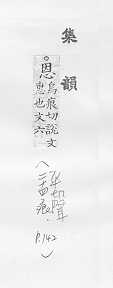 集韻
○恩烏痕切說文
惠也文六
痕
P.142